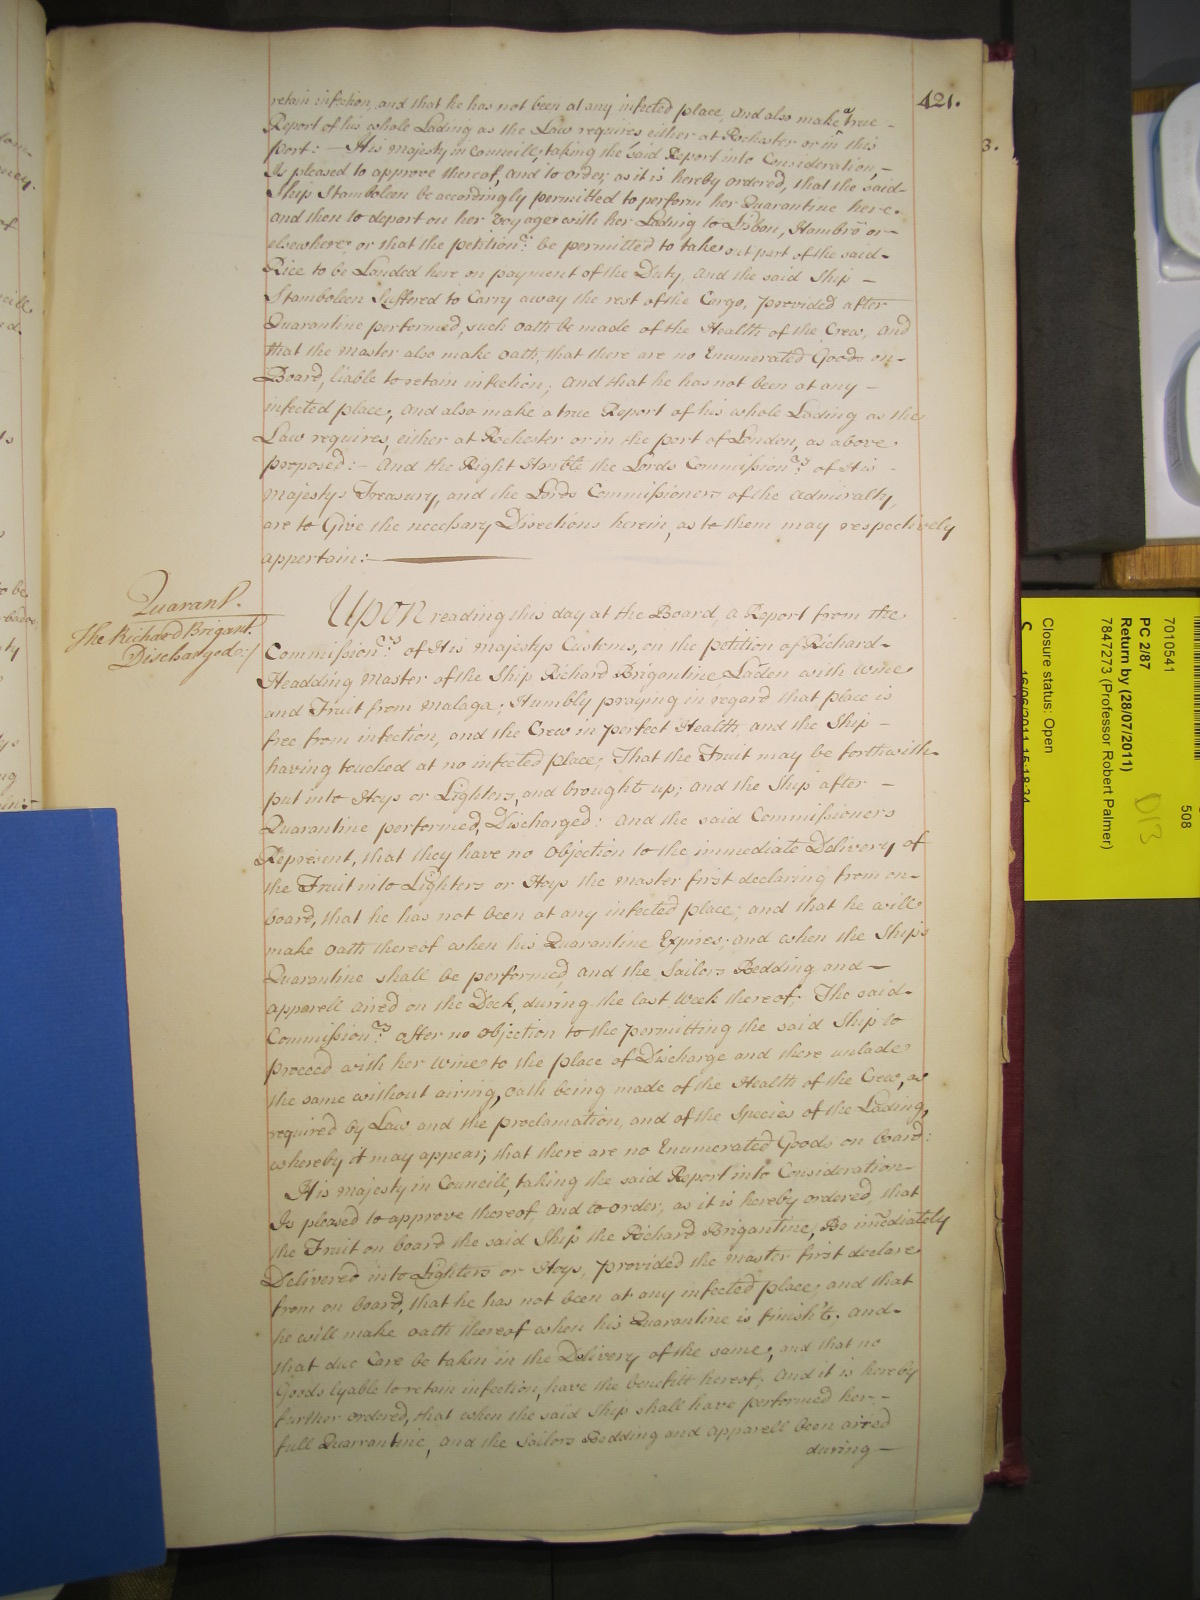 421.
retain infection, and that he has not been at any infected place, and also make a true -
Report of his whole Lading as the Law requires either at Rochester or in this
port: - His Majesty in Councill, taking the said Report into Consideration, -
Is pleased to approve thereof, and to order, as it is hereby ordered, that the said -
Ship Stamboleen be accordingly permitted to perform her Quarantine here.
and then to depart on her voyage with her Lading to Lisbon, Hambro or -
elsewhere or that the petitionr. be permitted to take out part of the said -
Rice to be Landed here on payment of the Duty, and the said Ship -
Stamboleen Suffered to Carry away the rest of the Cargo, provided after
Quarantine performed, such oath be made of the Health of the Crew, and
that the Master also make oath, that there are no Enumerated Goods on -
Board, liable to retain infection; and that he has not been at any -
infected place; and also make a true Report of his whole Lading as the
Law requires, either at Rochester or in the port of London, as above
proposed: - And the Right Honble the Lords Commissionrs. of His -
Majestys Treasury, and the Lords Commissioners of the Admiralty,
are to Give the necessary Directions herein, as to them may respectively
appertain: -
Quarant.
The Richard Brigant.
Discharged :/
Upon reading this day at the Board, a Report from the
Commissionrs. of His Majestys Customs, on the petition of Richard -
Headding Master of the Ship Richard Brigantine, Laden with Wine
and Fruit from Malaga; Humbly praying in regard that place is
free from infection, and the Crew in perfect Health, and the Ship -
having touched at no infected place; That the Fruit may be forthwith
put into Hoys or Lighters, and brought up; and the Ship after -
Quarantine performed, Discharged: And the said Commissioners
Represent, that they have no Objection to the immediate Delivery of
the Fruit into Lighters or Hoys the Master first declaring from on -
board, that he has not been at any infected place; and that he will
make oath thereof when his Quarantine Expires; and when the Ships
Quarantine shall be performed, and the Sailors Bedding and -
apparell aired on the Deck, during the last Week thereof; The said -
Commissionrs. offer no objection to the permitting the said Ship to
proceed with her Wine to the place of Discharge and there unlade
the same without airing, oath being made of the Health of the Crew, as
required by Law and the proclamation, and of the Species of the Lading,
whereby it may appear, that there are no Enumerated Goods on board:
His Majesty in Councill, taking the said Report into Consideration -
Is pleased to approve thereof, and to order, as it is hereby ordered, that
the Fruit on board the said Ship the Richard Brigantine, Be imediately
Delivered into Lighters or Hoys, provided the Master first declare
from on board, that he has not been at any infected place; and that
he will make oath thereof when his Quarantine is finish't. And -
that due Care be taken in the Delivery of the same, and that no
Goods lyable to retain infection, have the benefitt hereof; And it is hereby
further ordered, that when the said Ship shall have performed her -
full Quarrantine, and the Sailors Bedding and apparell been aired
during -
7010541
508
PC 2/87
Return by (28/07/2011)
7847273 (Professor Robert Palmer)
D13
Closure status: Open